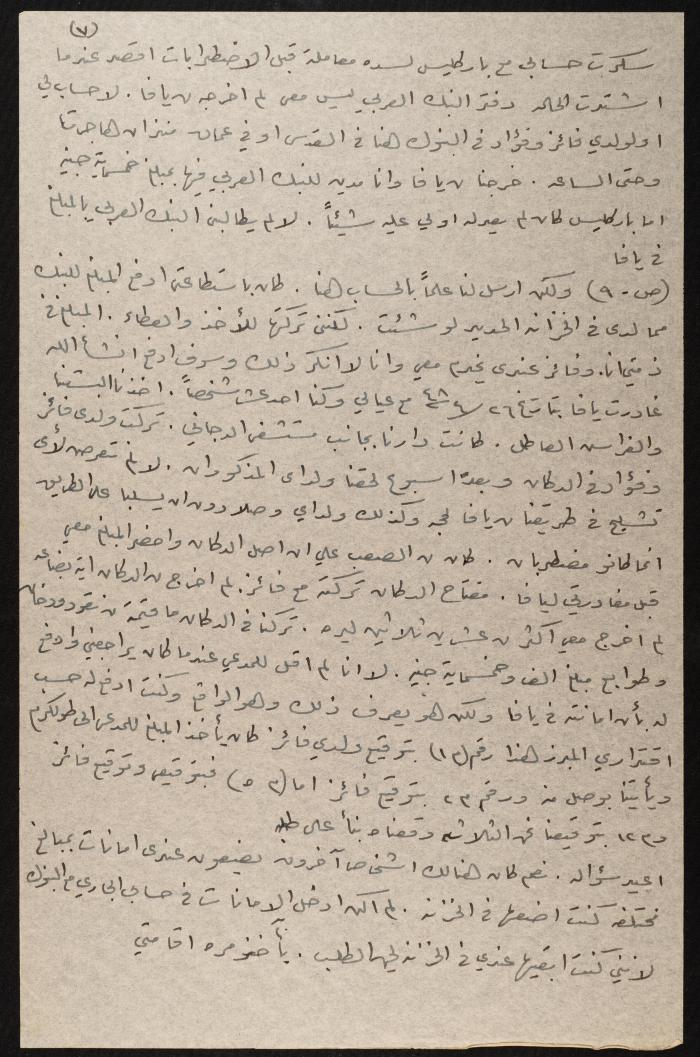 (٧)
سكرت حسابي مع باركليس لسده معاملة قبل الاضطرابات اقصد عندما
اشتدت الحاله دفتر البنك العربي ليس معي لم اخرجه من يافا . لا حساب لي
او لولدي فائز وفؤاد في البنوك هنا في القدس او في عمان منذ ان هاجرنا
وحتى الساعه . خرجنا من يافا وانا مدين للبنك العربي فيها بمبلغ خمسماية جنيه
اما باركليس فكان لم يعد له او لي عليه شيئاً . لا لم يطالبني البنك العربي بالمبلغ
في يافا
(ص - ٩) ولكن ارسل لنا علماً بالحساب هنا . كان باستطاعتي ادفع المبلغ للبنك
مما لدى في الخزانه الحديد لو شئت . لكنني تركتها للأخذ والعطاء . المبلغ في
ذمتي انا . وفائز عندى يخدم معي وانا لا انكر ذلك وسوف ادفع انشأ الله
غادرت يافا بتاريخ ٢٦/٤/٤٨ مع عيالي وكنا احد عشر شخصاً . اخذنا البستنا
والفراش العاطل . كانت دارنا بجانب مستشفى الدجاني . تركت ولدى فائز
وفؤاد في الدكان وبعد اسبوع لحقنا ولداى المذكوران . لا لم نتعرض لأى
تشليح في طريقنا من يافا لجهه وكذلك ولداي وصلا دون ان يسلبا على الطريق
انما كانو مضطربان . كان من الصعب علي ان اصل الدكان واحضر المبلغ معي
قبل مغادرتي ليافا . مفتاح الدكان تركته مع فائز . لم اخرج من الدكان اية بضاعه
لم اخرج معي اكثر من عشرين ثلاثين ليره . تركنا في الدكان ما قيمته من نقود ودخان
وطوابع مبلغ الف وخمسماية جنيه . لا انا لم اقل للمدعي عندما كان يراجعني وادفع
له بأن امانته في يافا ولكن هو يعرف ذلك وهو الواقع وكنت ادفع له حسب
اقتداري المبرز هذا رقم (م١) بتوقيع ولدي فائز كان يأخذ المبلغ للمدعى الى طولكرم
ويأتينا بوصل منه ورقم م٢ بتوقيع فائز اما (م٥) فبتوقيعي وتوقيع فائز
وم١٢ بتوقيعنا نحن الثلاثه وقعناه بناً على طلبه
اعيد سؤاله . نعم كان هنالك اشخاص آخرون يضعون عندى امانات بمبالغ
مختلفه كنت اضعها في الخزنه . لم اكن ادخل الامانات في حسابي الجاري مع البنوك
لانني كنت ابقيها عندي في الخزنه لحين الطلب . يأخذ مره اقامتي